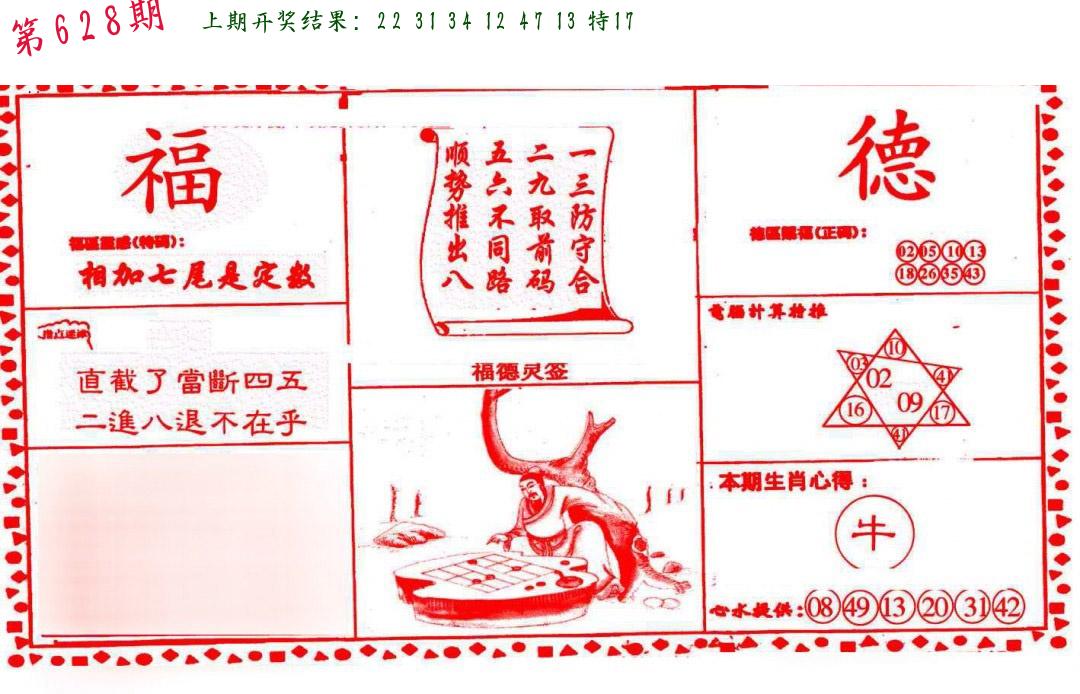 第628期
上期开奖结果：22 31 34 12 47 13 特17
福
福區靈感(特碼)：
相加七尾是定数
直截了當斷四五
二進八退不在乎
一三防守合
二九取前码
五六不同路
顺势推出八
福德灵签
德
德區賜福(正碼)：
02 05 10 13
18 26 35 43
電腦計算特推
10
03 02 41
16 09 17
41
本期生肖心得：
牛
心水提供：08 49 13 20 31 42